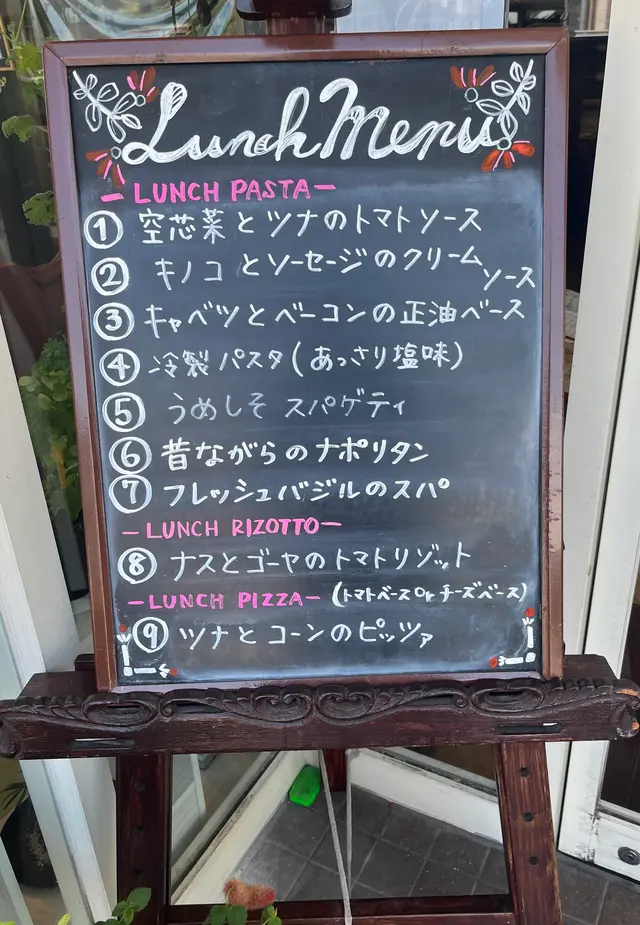 Lunch Menu
— LUNCH PASTA —
① 空芯菜とツナのトマトソース
② キノコとソーセージのクリームソース
③ キャベツとベーコンの正油ベース
④ 冷製パスタ(あっさり塩味)
⑤ うめしそ スパゲティ
⑥ 昔ながらのナポリタン
⑦ フレッシュバジルのスパ
— LUNCH RIZOTTO —
⑧ ナスとゴーヤのトマトリゾット
— LUNCH PIZZA — (トマトベース or チーズベース)
⑨ ツナとコーンのピッツァ